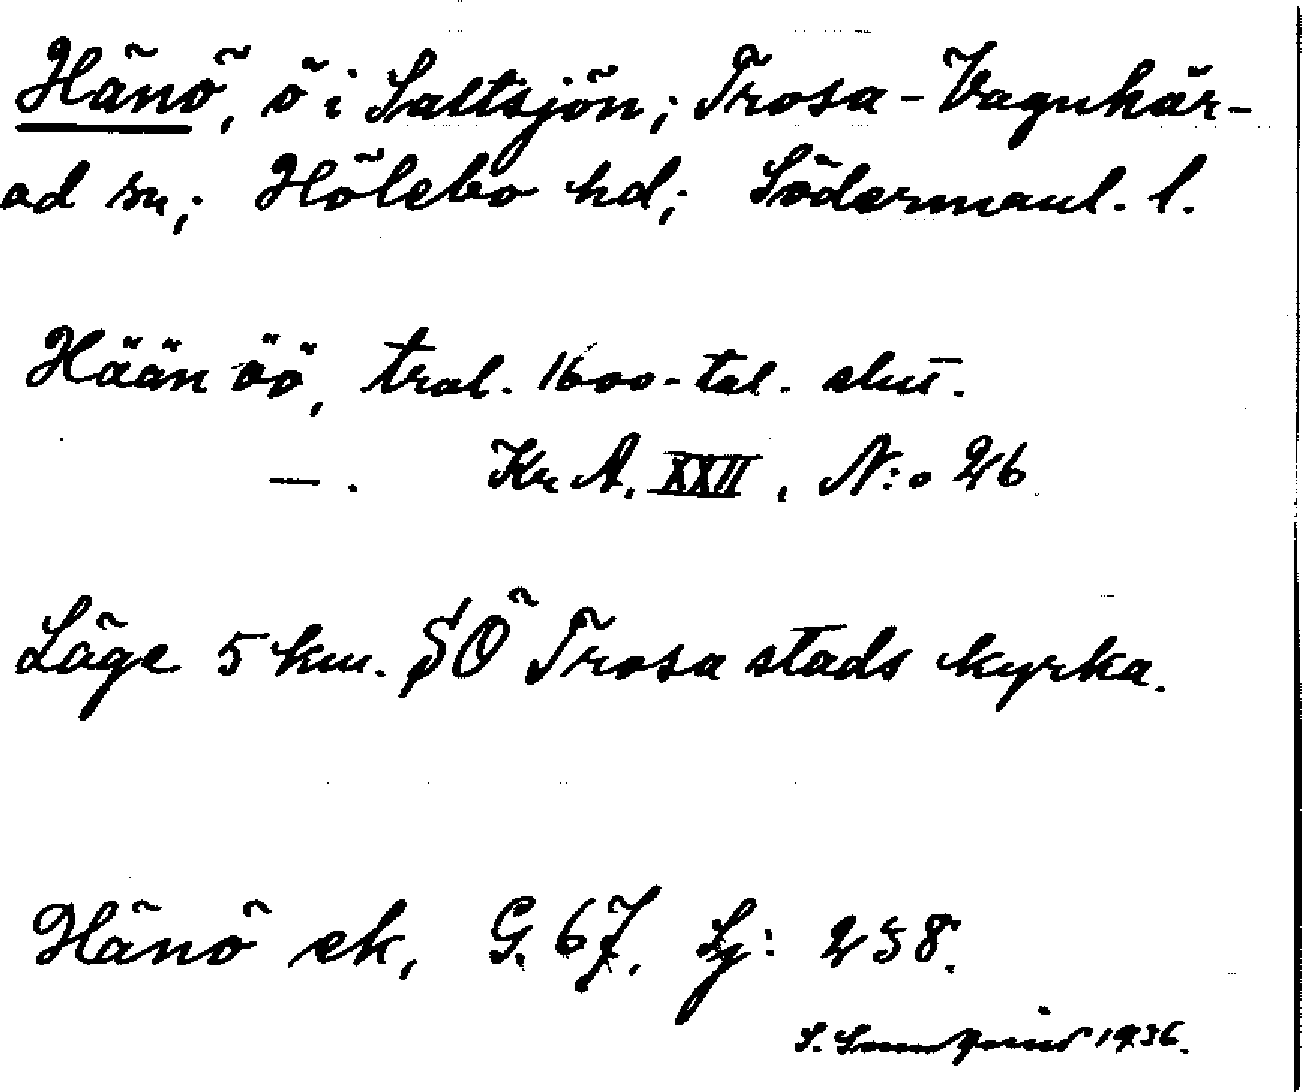 Hänö, ö i Saltsjön; Trosa-Vagnhär-
ad sn; Hölebo hd; Södermanl. l.
Häänöö, tral. 1600-tal. slut.
— . Kr. A. XXII, N:o 26
Läge 5 km. SÖ Trosa stads kyrka.
Hänö ek, G. 67. Lj: 258.
S. 1936.